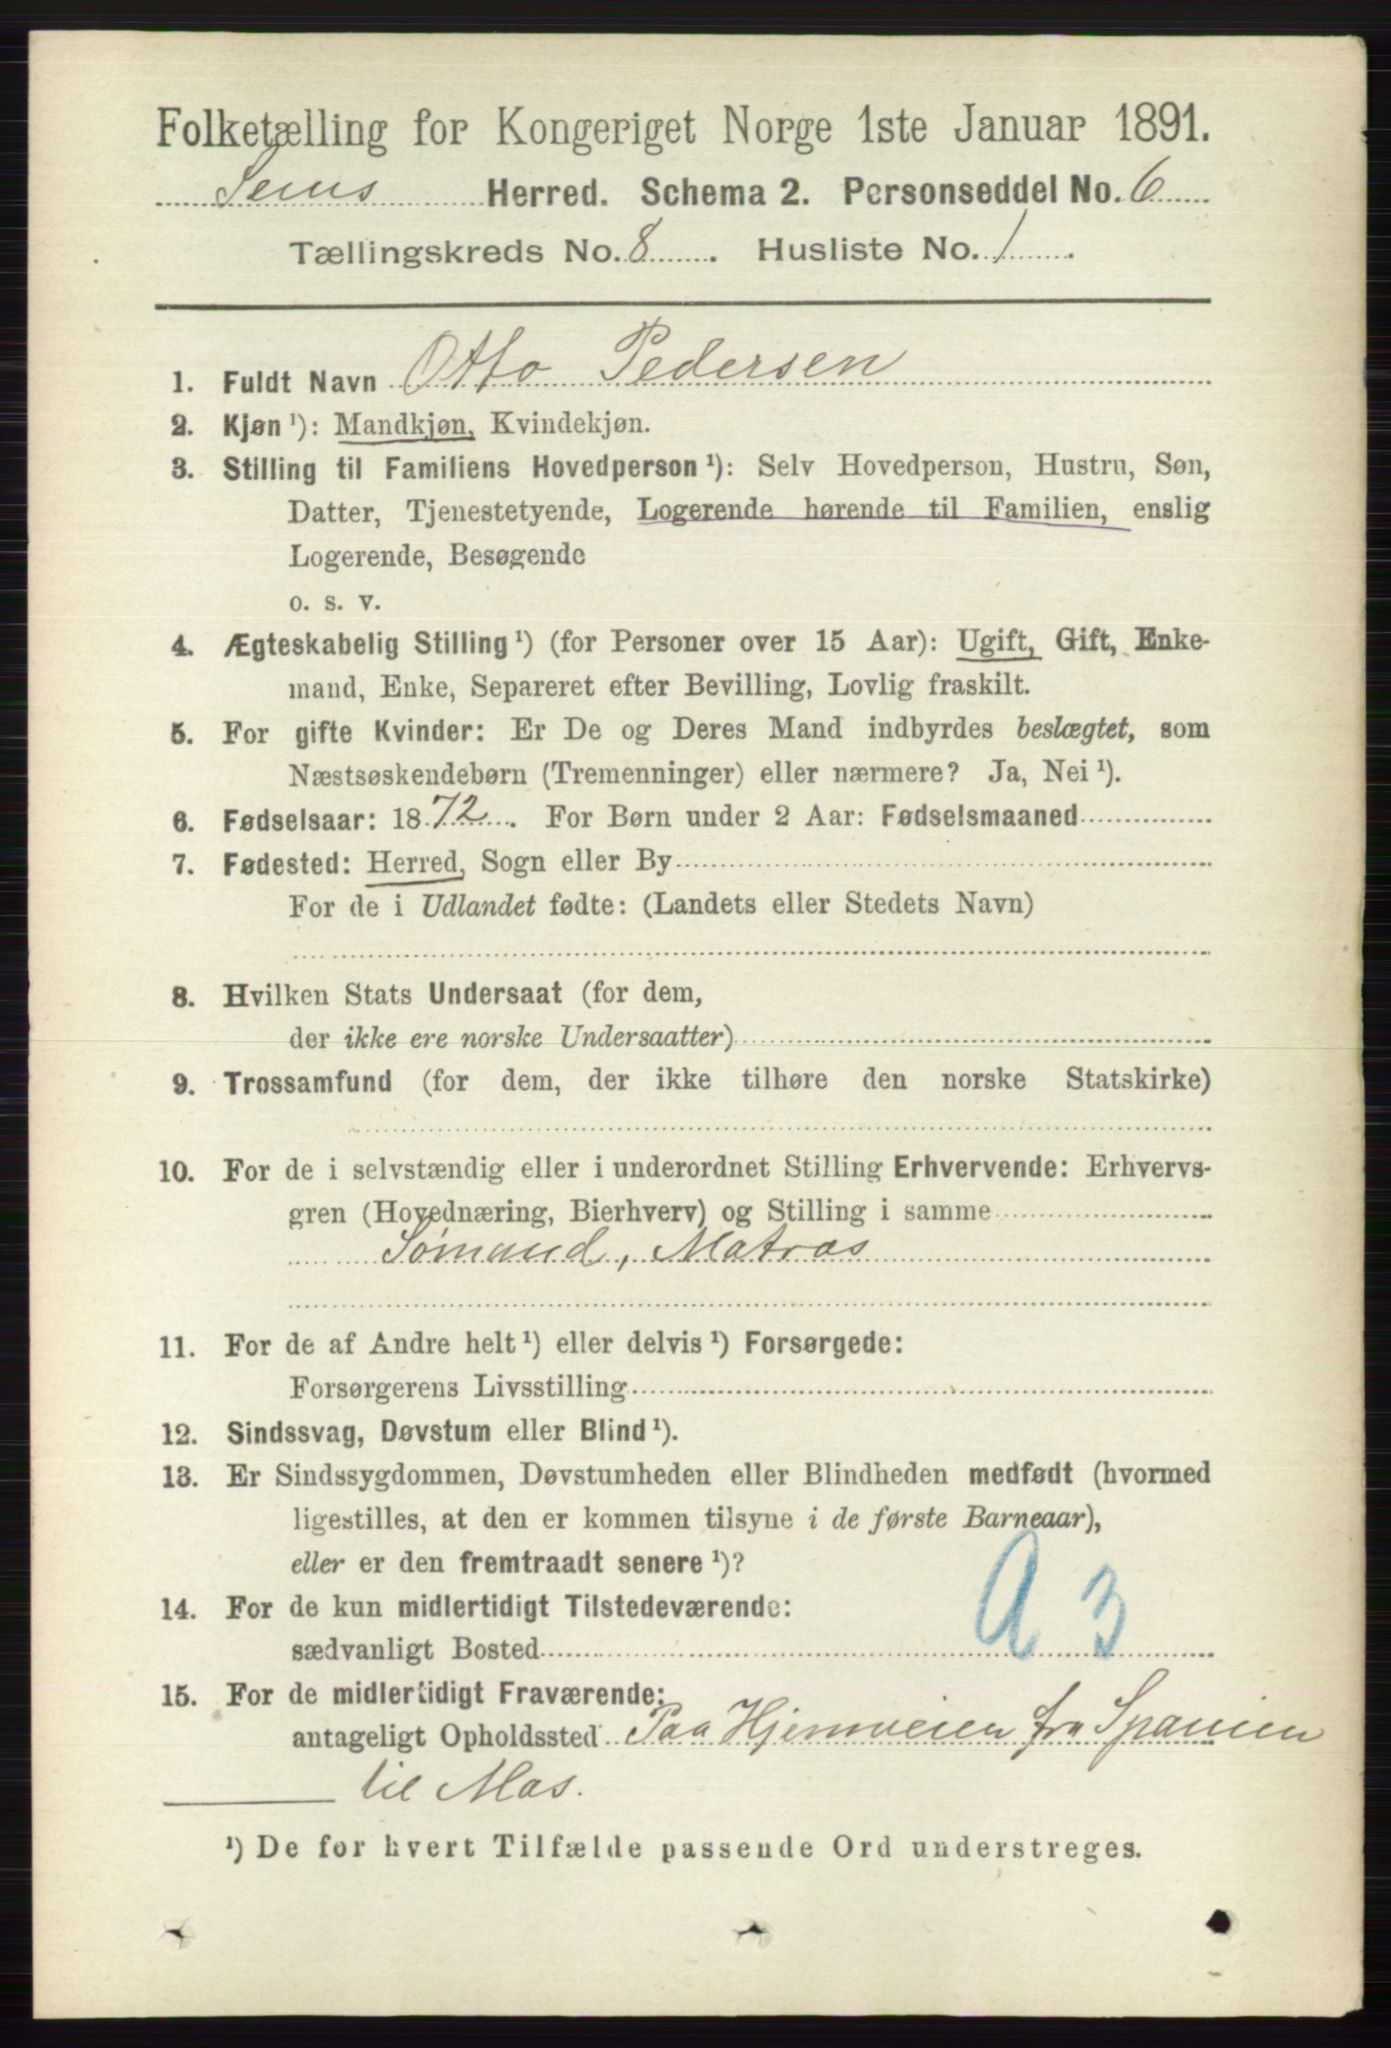 Folketælling for Kongeriget Norge 1ste Januar 1891.
Sems Herred. Schema 2. Personseddel No. 6
Tællingskreds No. 8. Husliste No. 1.
1. Fuldt Navn Otto Pedersen
2. Kjøn ¹): Mandkjøn, Kvindekjøn.
3. Stilling til Familiens Hovedperson ¹): Selv Hovedperson, Hustru, Søn,
Datter, Tjenestetyende, Logerende hørende til Familien, enslig
Logerende, Besøgende
o. s. v.
4. Ægteskabelig Stilling ¹) (for Personer over 15 Aar): Ugift, Gift, Enke-
mand, Enke, Separeret efter Bevilling, Lovlig fraskilt.
5. For gifte Kvinder: Er De og Deres Mand indbyrdes beslægtet, som
Næstsøskendebørn (Tremenninger) eller nærmere? Ja, Nei ¹).
6. Fødselsaar: 1872. For Børn under 2 Aar: Fødselsmaaned
7. Fødested: Herred, Sogn eller By
For de i Udlandet fødte: (Landets eller Stedets Navn)
8. Hvilken Stats Undersaat (for dem,
der ikke ere norske Undersaatter)
9. Trossamfund (for dem, der ikke tilhøre den norske Statskirke)
10. For de i selvstændig eller i underordnet Stilling Erhvervende: Erhvervs-
gren (Hovednæring, Bierhverv) og Stilling i samme
Sømand, Matros
11. For de af Andre helt ¹) eller delvis ¹) Forsørgede:
Forsørgerens Livsstilling
12. Sindssvag, Døvstum eller Blind ¹).
13. Er Sindssygdommen, Døvstumheden eller Blindheden medfødt (hvormed
ligestilles, at den er kommen tilsyne i de første Barneaar),
eller er den fremtraadt senere ¹)?
14. For de kun midlertidigt Tilstedeværende:
sædvanligt Bosted
A 3
15. For de midlertidigt Fraværende:
antageligt Opholdssted Paa Hjemveien fra Spanien
til Mos.
¹) De for hvert Tilfælde passende Ord understreges.